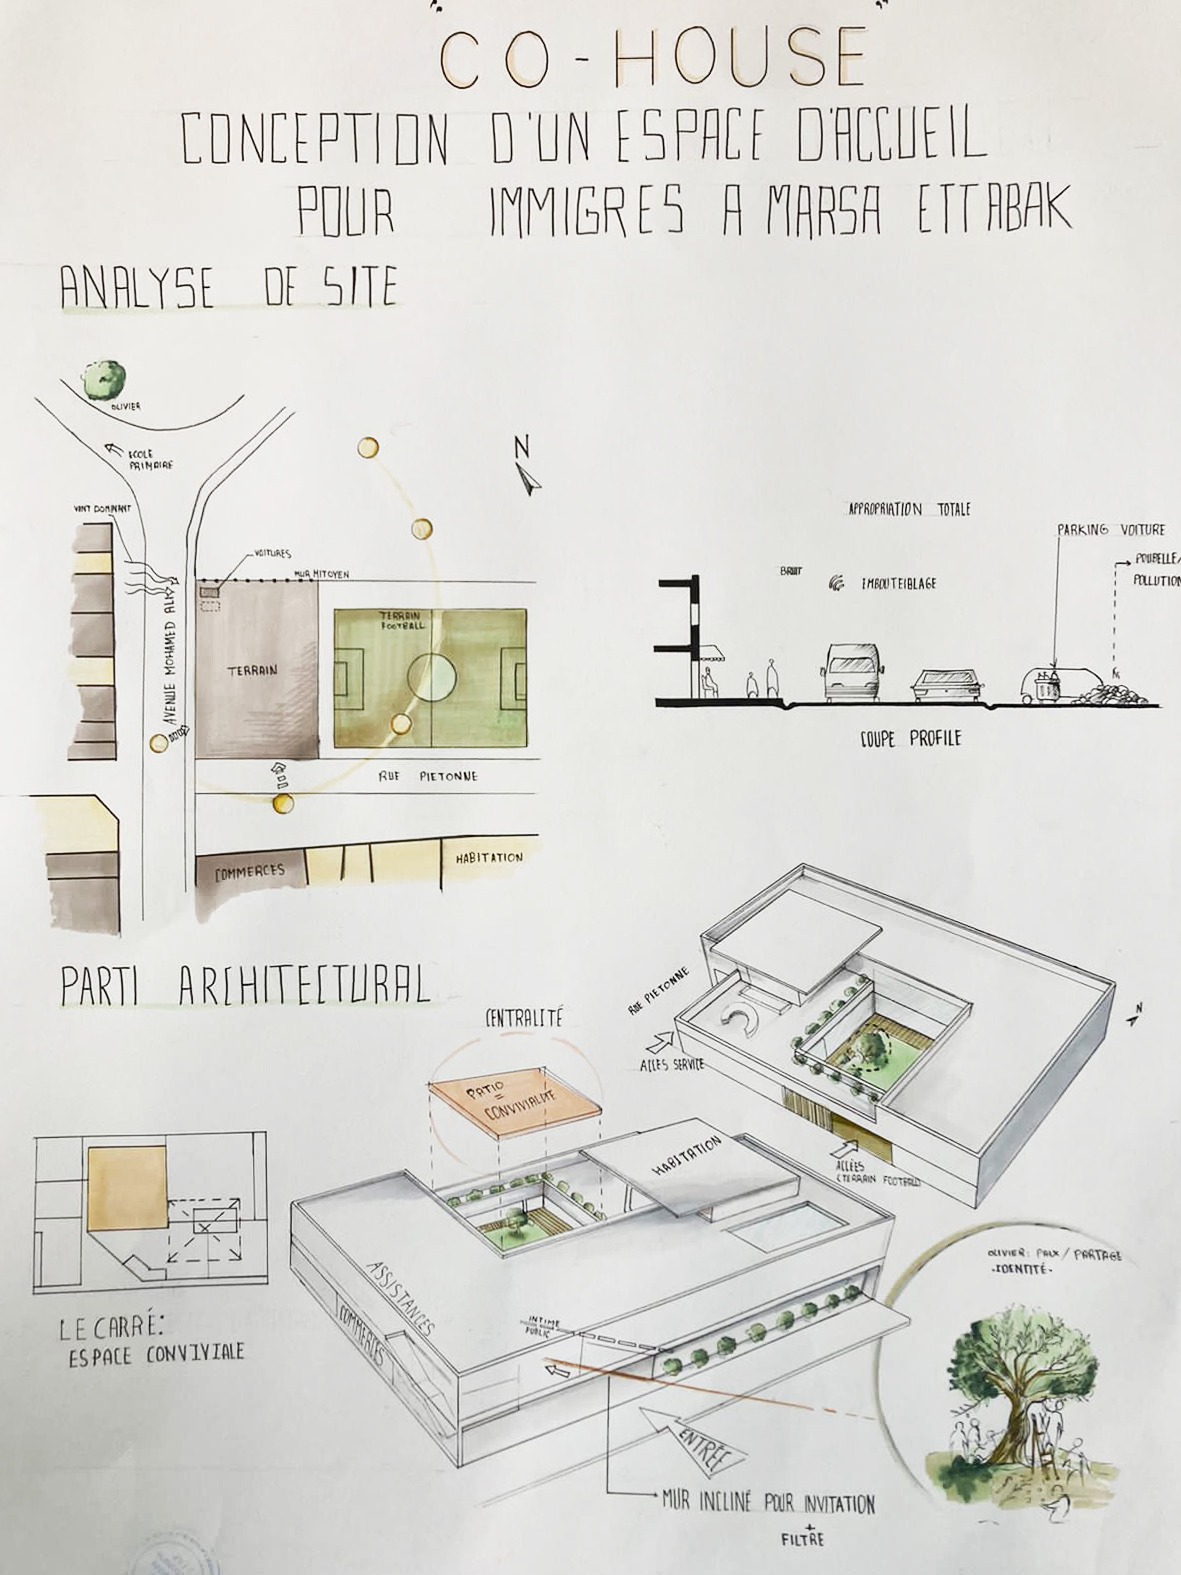 "CO-HOUSE"
CONCEPTION D'UN ESPACE D'ACCUEIL
POUR IMMIGRES A MARSA ETTABAK
ANALYSE DE SITE
OLIVIER
ECOLE
PRIMAIRE
VENT DOMINANT
VOITURES
MUR MITOYEN
N
AVENUE MOHAMED ALI
TERRAIN
TERRAIN
FOOTBALL
RUE PIETONNE
COMMERCES
HABITATION
APPROPRIATION TOTALE
PARKING VOITURE
POUBELLE/
POLLUTION
BRUIT
EMBOUTEIBLAGE
COUPE PROFILE
PARTI ARCHITECTURAL
CENTRALITÉ
PATIO
=
CONVIVIALITÉ
RUE PIETONNE
ACCES SERVICE
N
ACCÉES
(TERRAIN FOOTBALL)
HABITATION
ASSISTANCES
COMMERCES
INTIME
PUBLIC
ENTRÉE
MUR INCLINÉ POUR INVITATION
+
FILTRE
LE CARRÉ:
ESPACE CONVIVIALE
OLIVIER: PAIX / PARTAGE
-IDENTITÉ-